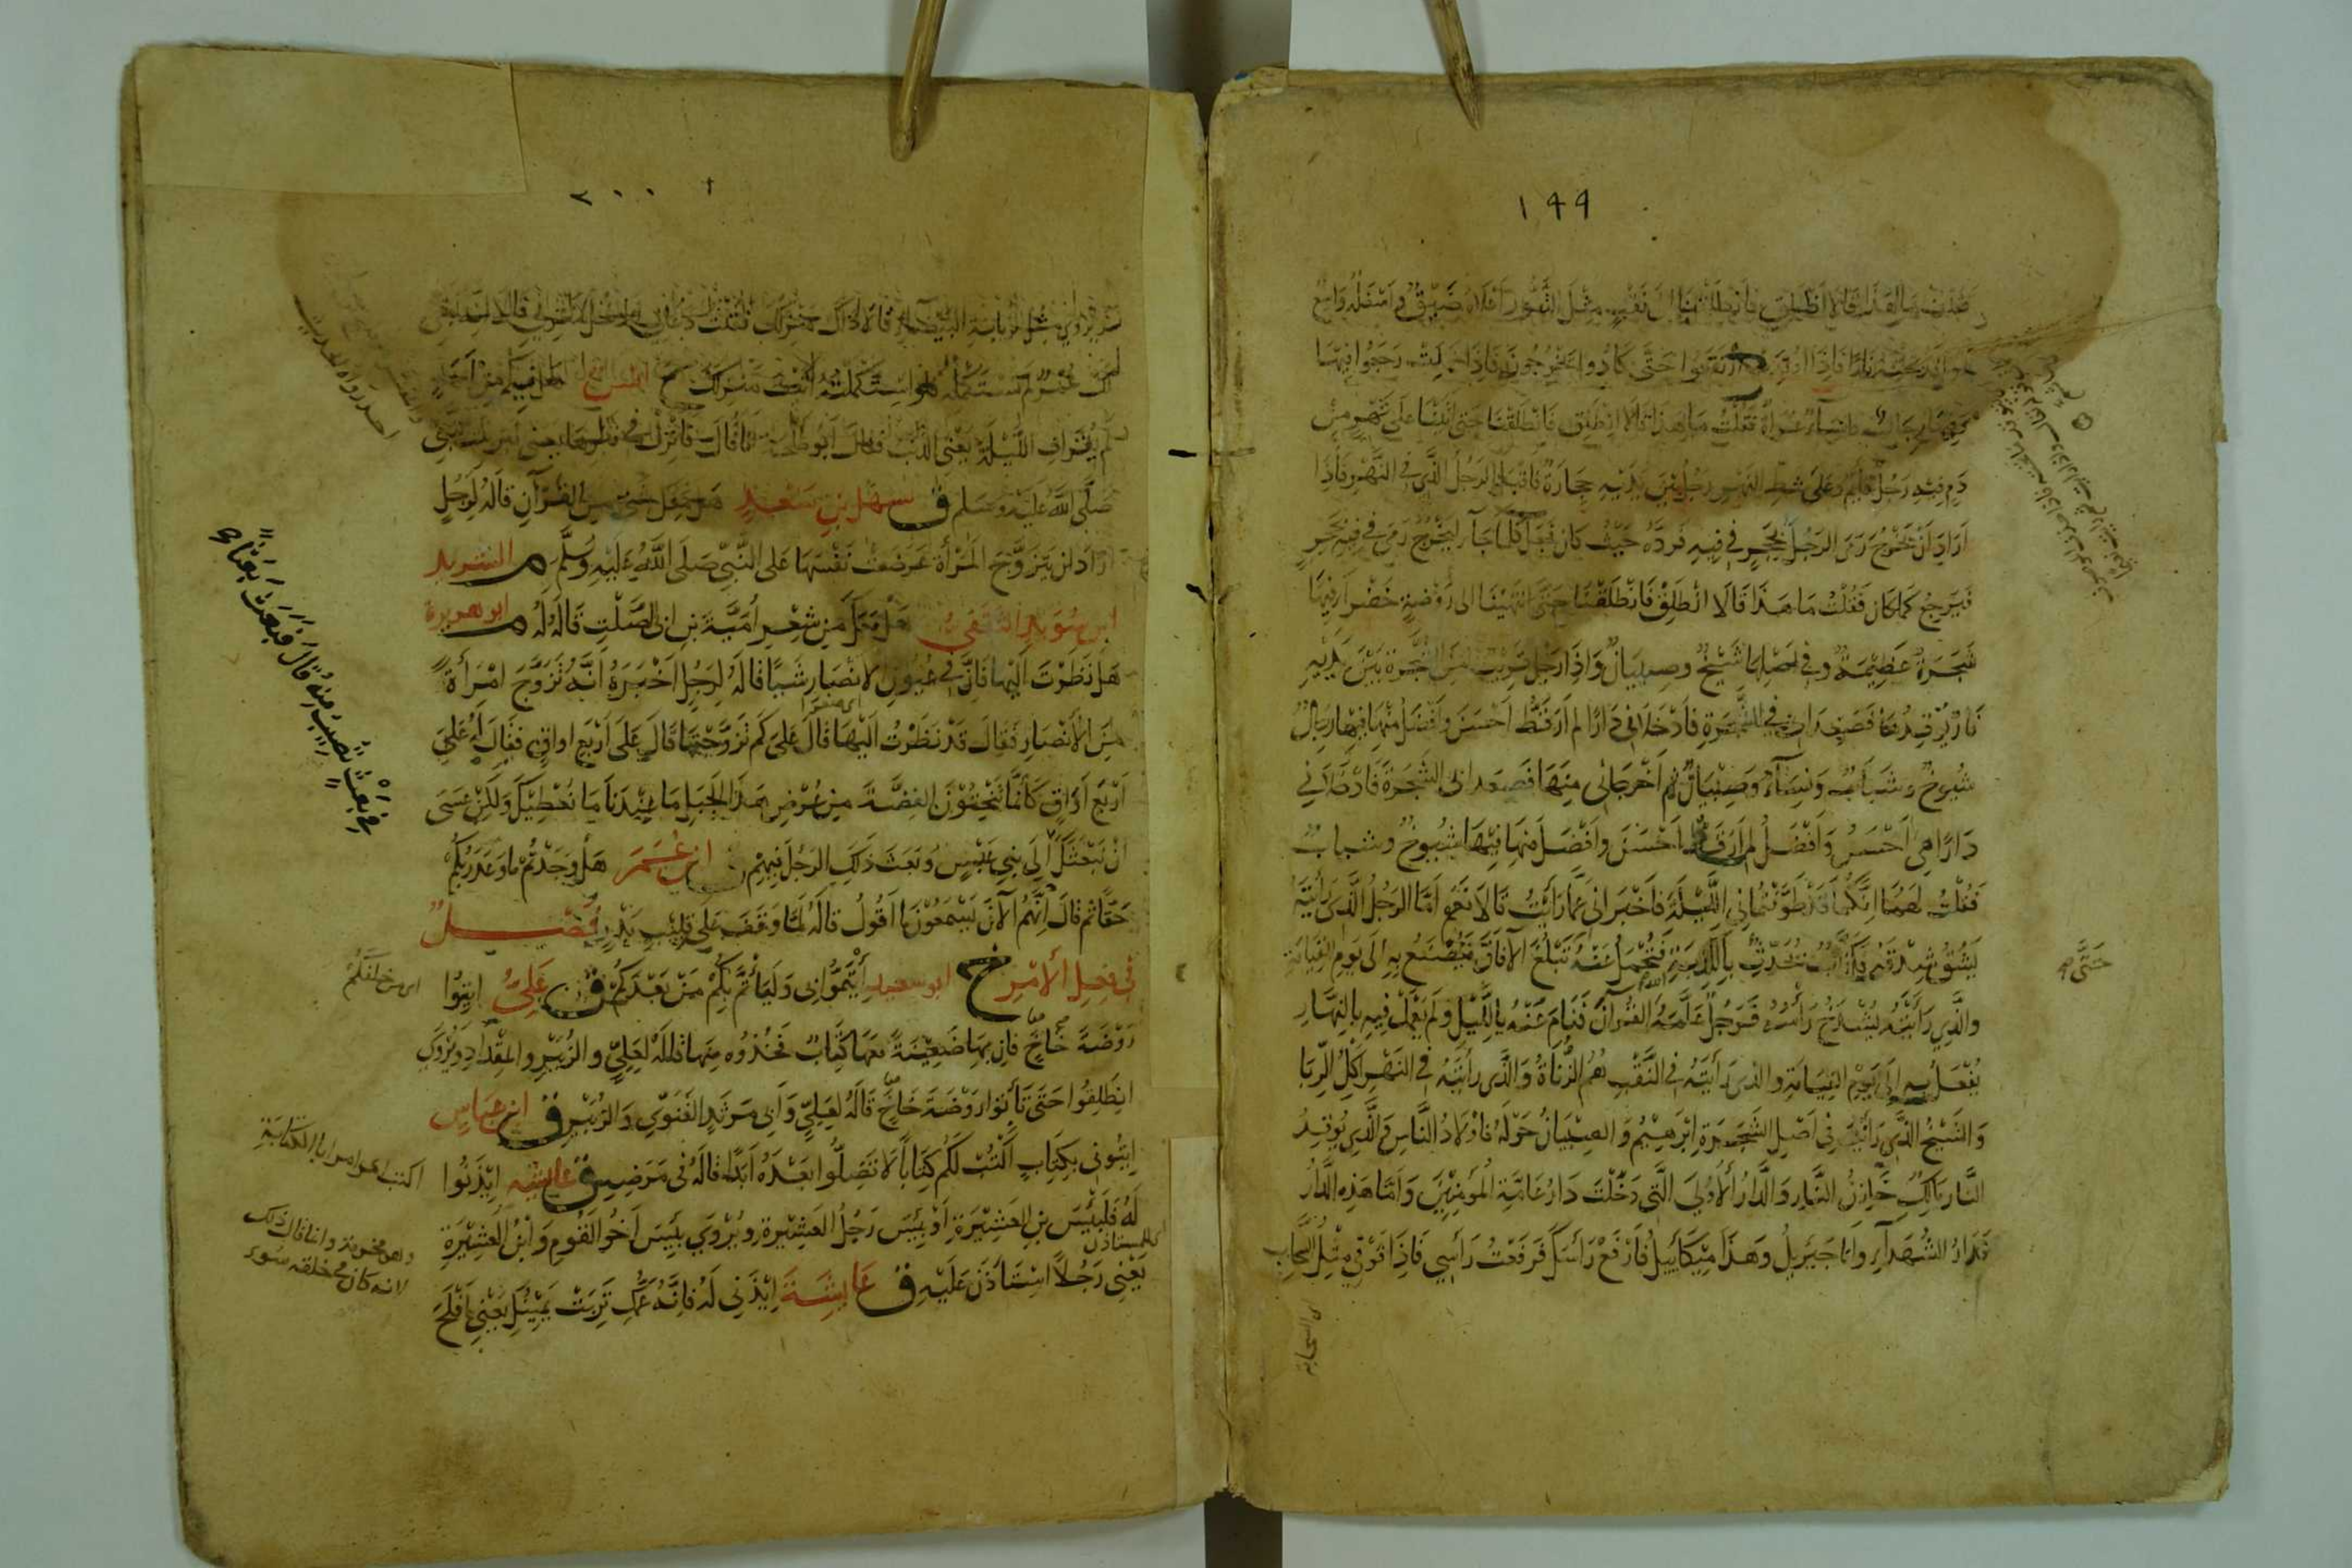 ١٩٩
ما هذا قالا انطلق فانطلقنا الى نقب مثل التنور اعلاه ضيق واسفله واسع
نارا فاذا ارتفعوا حتى كادوا يخرجون فاذا خمدت رجعوا فيها
وفيها رجال ونساء عراة فقلت ما هذا قالا انطلق فانطلقنا حتى اتينا على نهر من
دم فيه رجل قايم وعلى شط النهر رجل بين يديه حجارة فاقبل الرجل الذي في النهر فاذا
اراد ان يخرج رمى الرجل بحجر في فيه فرده حيث كان فجعل كلما جآء ليخرج رمى في فيه بحجر
فيرجع كما كان فقلت ما هذا قالا انطلق فانطلقنا حتى انتهينا الى روضة خضرآء فيها
شجرة عظيمة وفي اصلها شيخ وصبيان واذا رجل قريب من الشجرة بين يديه
نار يوقدها فصعدا بي في الشجرة فادخلاني دارا لم ار قط احسن وافضل منها فيها رجال
شيوخ وشباب ونسآء وصبيان ثم اخرجاني منها فصعدا بي الشجرة فادخلاني
دارا هي احسن وافضل لم ار قط احسن وافضل منها فيها شيوخ وشباب
فقلت لهما انكما قد طوفتماني الليلة فاخبراني عما رايت قالا نعم اما الرجل الذي رايته
يشق شدقه فكذاب يحدث بالكذبة فتحمل عنه تبلغ الآفاق فيصنع به الى يوم القيامة
حتى صح
والذي رايته يشدخ راسه فرجل علمه الله القرآن فنام عنه بالليل ولم يعمل فيه بالنهار
يفعل به الى يوم القيامة والذي رايته في النقب هم الزناة والذي رايته في النهر آكل الربا
والشيخ الذي رايته في اصل الشجرة ابرهيم والصبيان حوله فاولاد الناس والذي يوقد
النار مالك خازن النار والدار الاولى التي دخلت دار عامة المؤمنين واما هذه الدار
فدار الشهدآء وانا جبريل وهذا ميكاييل فارفع راسك فرفعت راسي فاذا فوقي مثل السحاب
٢٠٠
لم يستكمله فلو استكملته اتيت منزلك خ انس هل فيكم من احد
لم يقارف الليلة يعني الذنب فقال ابو طلحة انا قال فانزل في قبرها يعني قبر بنت النبي
صلى الله عليه وسلم ق سهل بن سعد هل معك شيء من القرآن قاله لرجل
اراد ان يتزوج المرأة عرضت نفسها على النبي صلى الله عليه وسلم م الشريد
ابن سويد الثقفي هل معك من شعر امية بن ابي الصلت قاله له م ابو هريرة
هل نظرت اليها فان في عيون الانصار شيا قاله لرجل اخبره انه تزوج امرأة
من الانصار فقال قد نظرت اليها قال على كم تزوجتها قال على اربع اواق فقال له على
اربع اواق كانما تنحتون الفضة من عرض هذا الجبل ما عندنا ما نعطيك ولكن عسى
ان نبعثك الى بني عبس وبعث ذلك الرجل فيهم ق ابن عمر هل وجدتم ما وعد ربكم
في بعث تصيب منه قال فبعث بعثا
حقا ثم قال انهم الآن يسمعون ما اقول قاله لما وقف على قليب بدر فصل
في فعل الامر خ ابو سعيد ايتموا بي وليأتم بكم من بعدكم ق علي ايتوا
روضة خاخ فان بها ضعينة معها كتاب فخذوه منها قاله لعلي والزبير والمقداد ويروى
انطلقوا حتى تأتوا روضة خاخ قاله لعلي وابي مرثد الغنوي والزبير ق ابن عباس
ايتوني بكتاب اكتب لكم كتابا لا تضلوا بعده ابدا قاله في مرضه ق عايشة ايذنوا
له فلبيس بن العشيرة او بيس رجل العشيرة ويروى بيس اخو القوم وابن العشيرة
وهو مخرمة وانما قال ذلك
لانه كان في خلقه سوء
يعني رجلا استاذن عليه ق عايشة ايذني له فانه عمك تربت يمينك يعني افلح